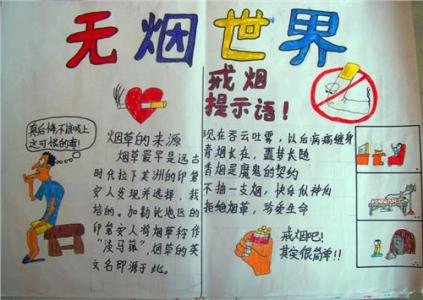 无烟世界
真后悔不该吸上
这可恨的毒!
烟草的来源
烟草最早是远古
时代拉丁美洲的印第
安人发现并选择、栽
培的。加勒比地区的
印第安人将烟草称作
“淡马菲”,烟草的英
文名即源于此。
戒烟
提示语!
现在吞云吐雾,以后病痛缠身
青烟长在,噩梦长随
香烟是魔鬼的契约
不抽一支烟,快乐似神仙
拒绝烟草,珍爱生命
戒烟吧!
其实很简单!!